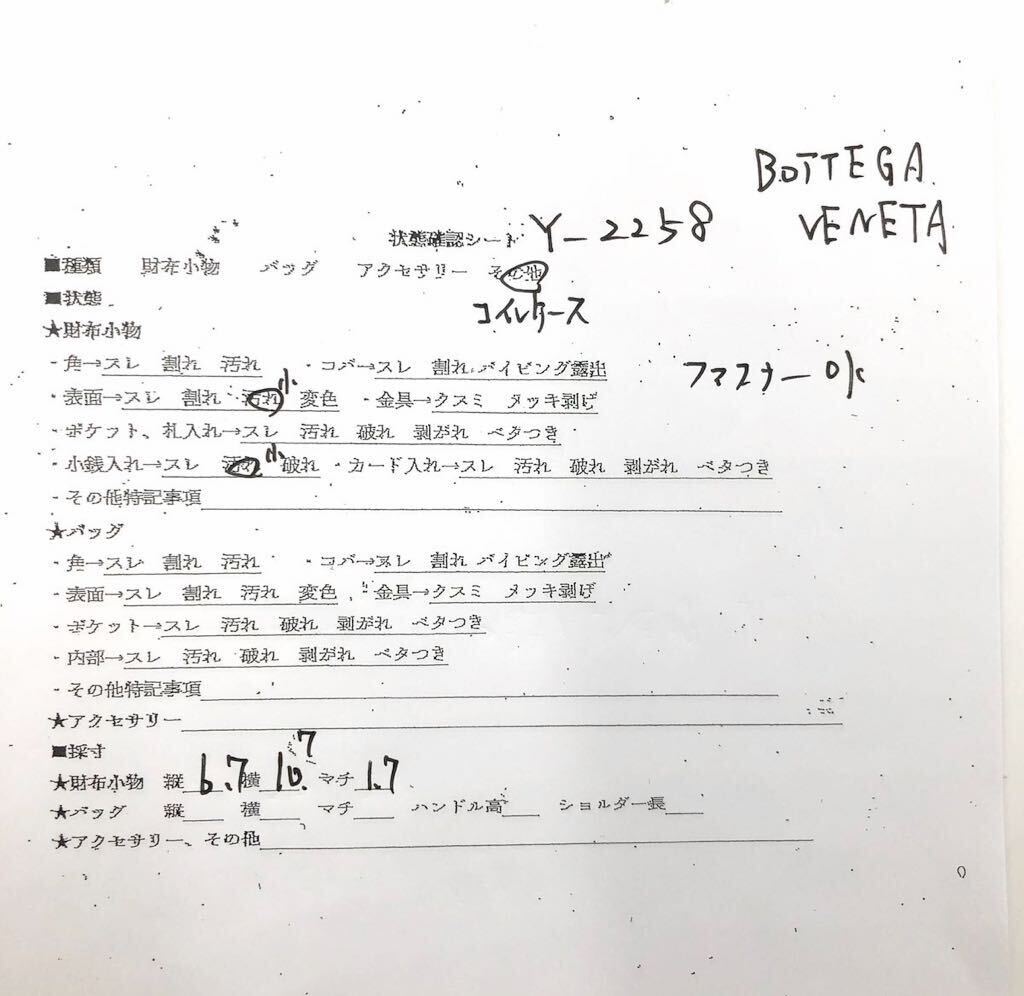 BOTTEGA
VENETA
状態確認シート Y-2258
■種類 財布小物 バッグ アクセサリー その他
コインケース
■状態
★財布小物
・角→スレ 割れ 汚れ ・コバ→スレ 割れ パイピング露出
ファスナーOK
・表面→スレ 割れ 汚れ小 変色 ・金具→クスミ メッキ剥げ
・ポケット、札入れ→スレ 汚れ 破れ 剥がれ ベタつき
・小銭入れ→スレ 汚れ小 破れ ・カード入れ→スレ 汚れ 破れ 剥がれ ベタつき
・その他特記事項
★バッグ
・角→スレ 割れ 汚れ ・コバ→スレ 割れ パイピング露出
・表面→スレ 割れ 汚れ 変色 ・金具→クスミ メッキ剥げ
・ポケット→スレ 汚れ 破れ 剥がれ ベタつき
・内部→スレ 汚れ 破れ 剥がれ ベタつき
・その他特記事項
★アクセサリー
■採寸
★財布小物 縦6.7 横10.7 マチ1.7
★バッグ 縦 横 マチ ハンドル高 ショルダー長
★アクセサリー、その他